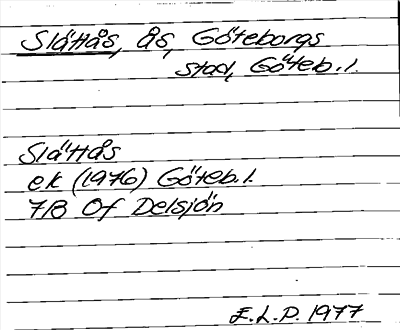 Slättås, ås, Göteborgs
stad, Göteb. l.
Slättås
ek (1976) Göteb. l.
7B Of Delsjön
E.L.P. 1977